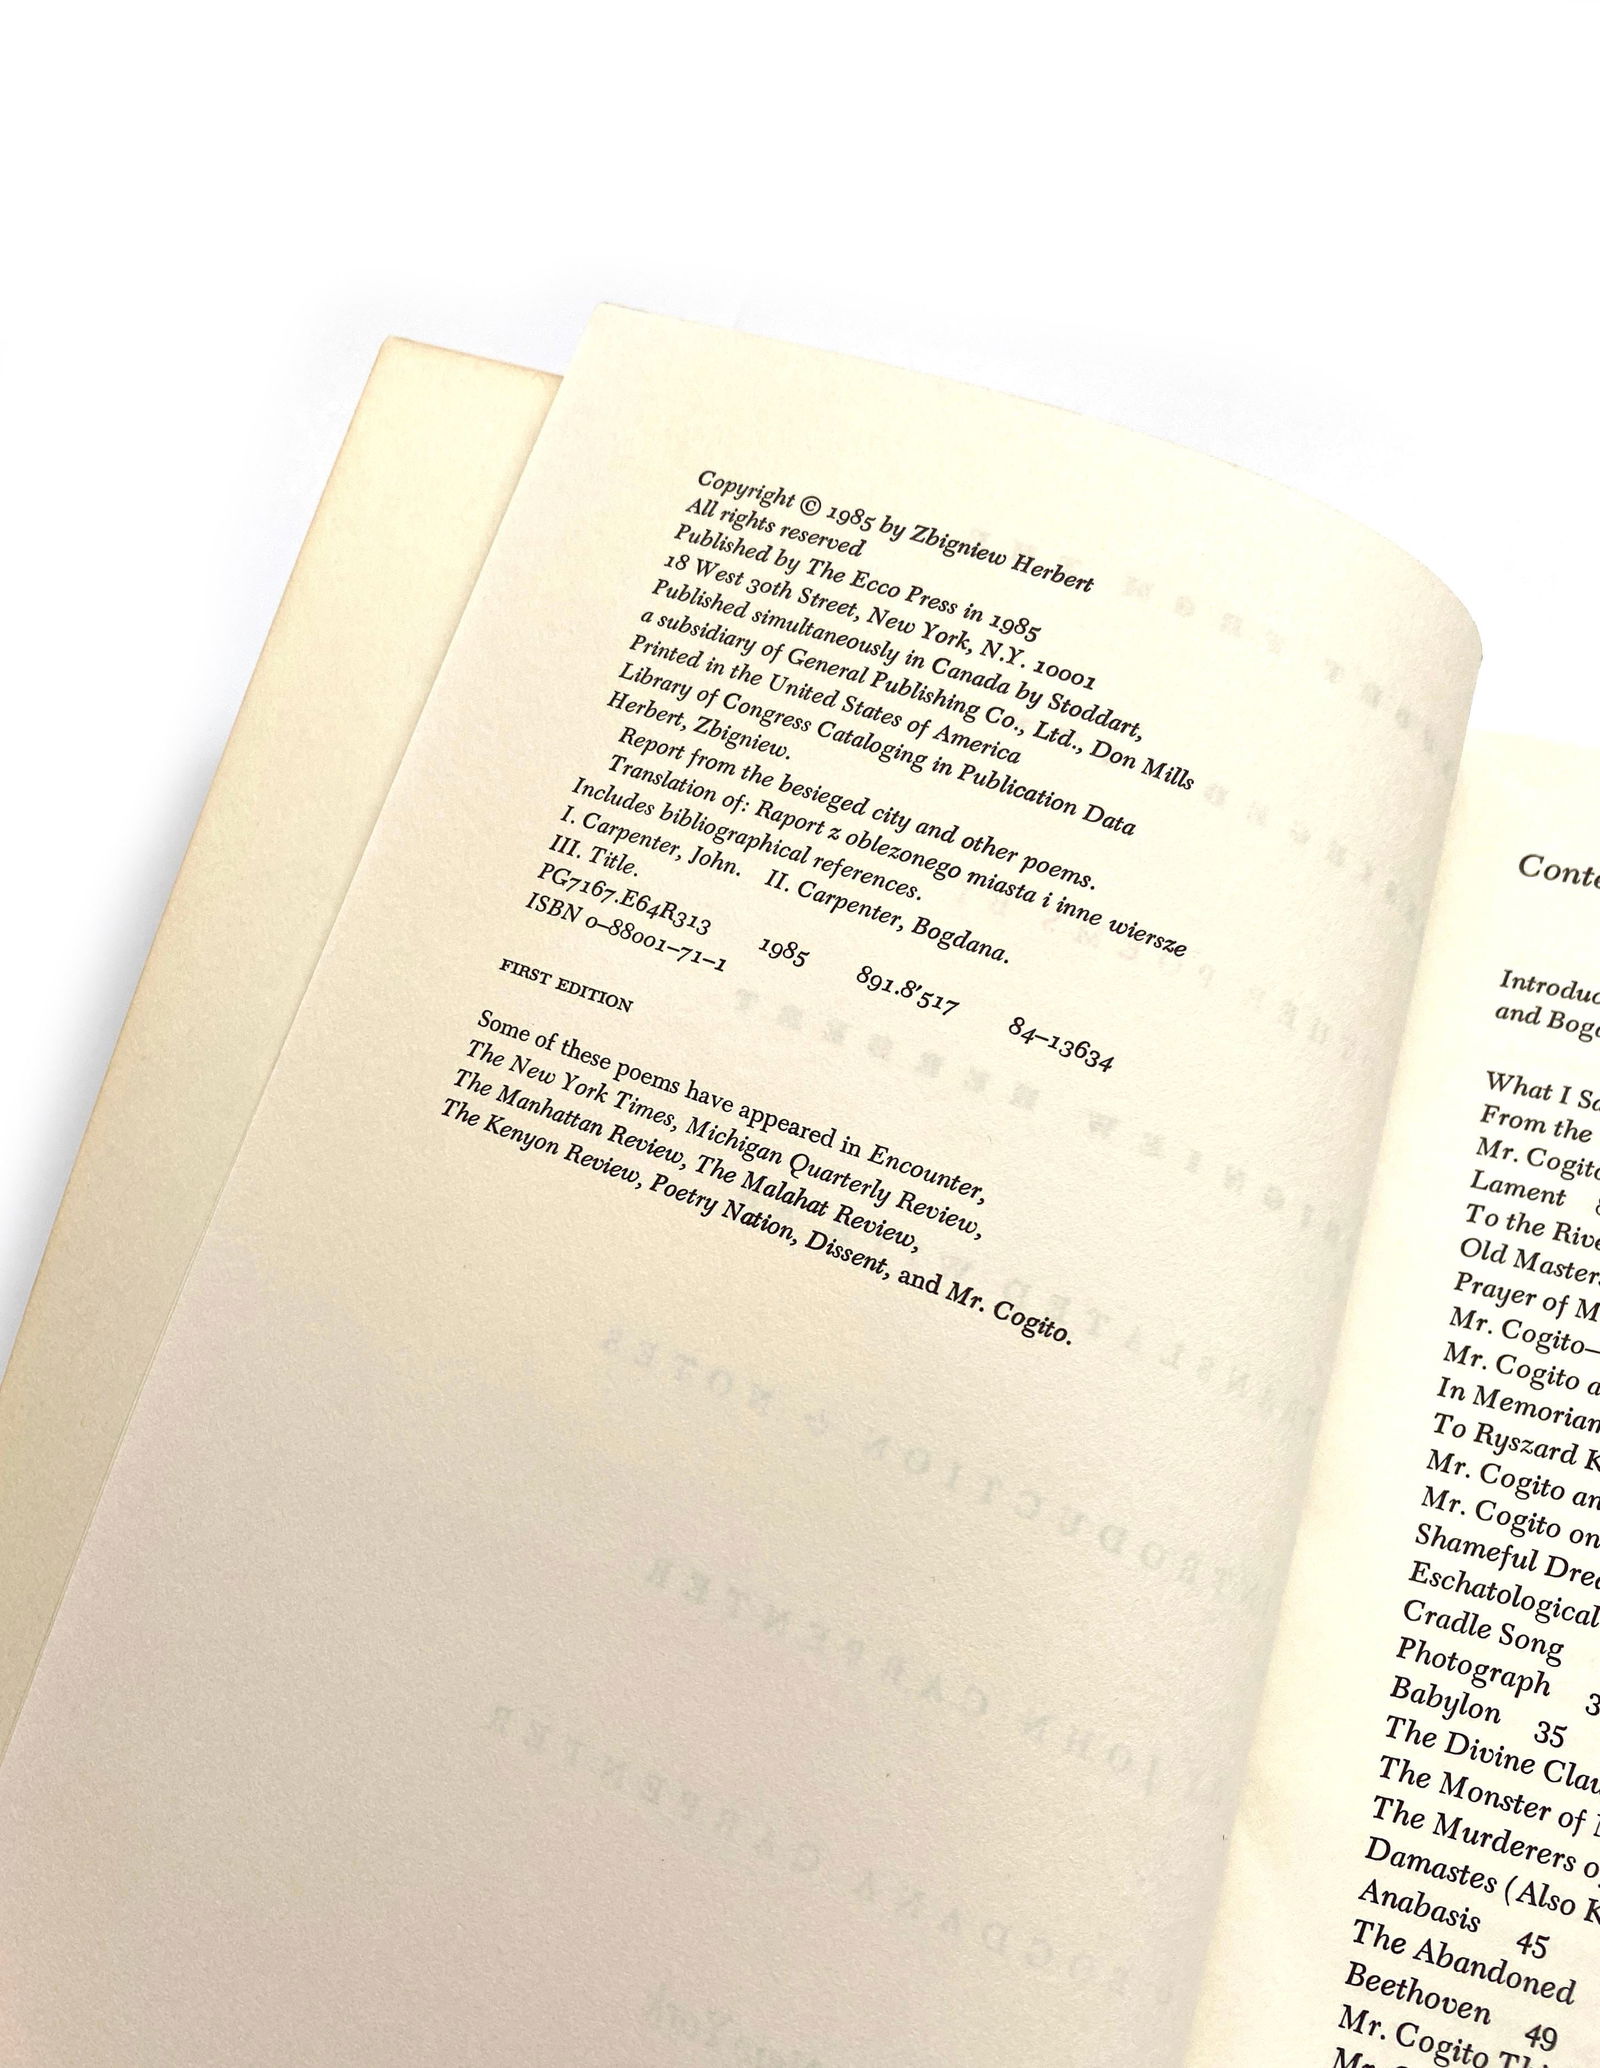 Copyright © 1985 by Zbigniew Herbert
All rights reserved
Published by The Ecco Press in 1985
18 West 30th Street, New York, N.Y. 10001
Published simultaneously in Canada by Stoddart,
a subsidiary of General Publishing Co., Ltd., Don Mills
Printed in the United States of America
Library of Congress Cataloging in Publication Data
Herbert, Zbigniew.
Report from the besieged city and other poems.
Translation of: Raport z oblezonego miasta i inne wiersze
Includes bibliographical references.
I. Carpenter, John. II. Carpenter, Bogdana.
III. Title.
PG7167.E64R313 1985 891.8'517 84–13634
ISBN 0–88001–71–1
FIRST EDITION
Some of these poems have appeared in Encounter,
The New York Times, Michigan Quarterly Review,
The Manhattan Review, The Malahat Review,
The Kenyon Review, Poetry Nation, Dissent, and Mr. Cogito.
Introduc
and Bog
What I
From the
Mr. Cogito
Lament
To the
Old Masters
Prayer of
Mr. Cogito—
Mr. Cogito a
In Memoriam
To Ryszard K
Mr. Cogito an
Mr. Cogito on
Shameful
Eschatological
Cradle Song
Photograph
Babylon 35
The Divine
The Monster of
The Murderers
Damastes (Also K
Anabasis 45
The Abandoned
Beethoven 49
Mr. Cogito